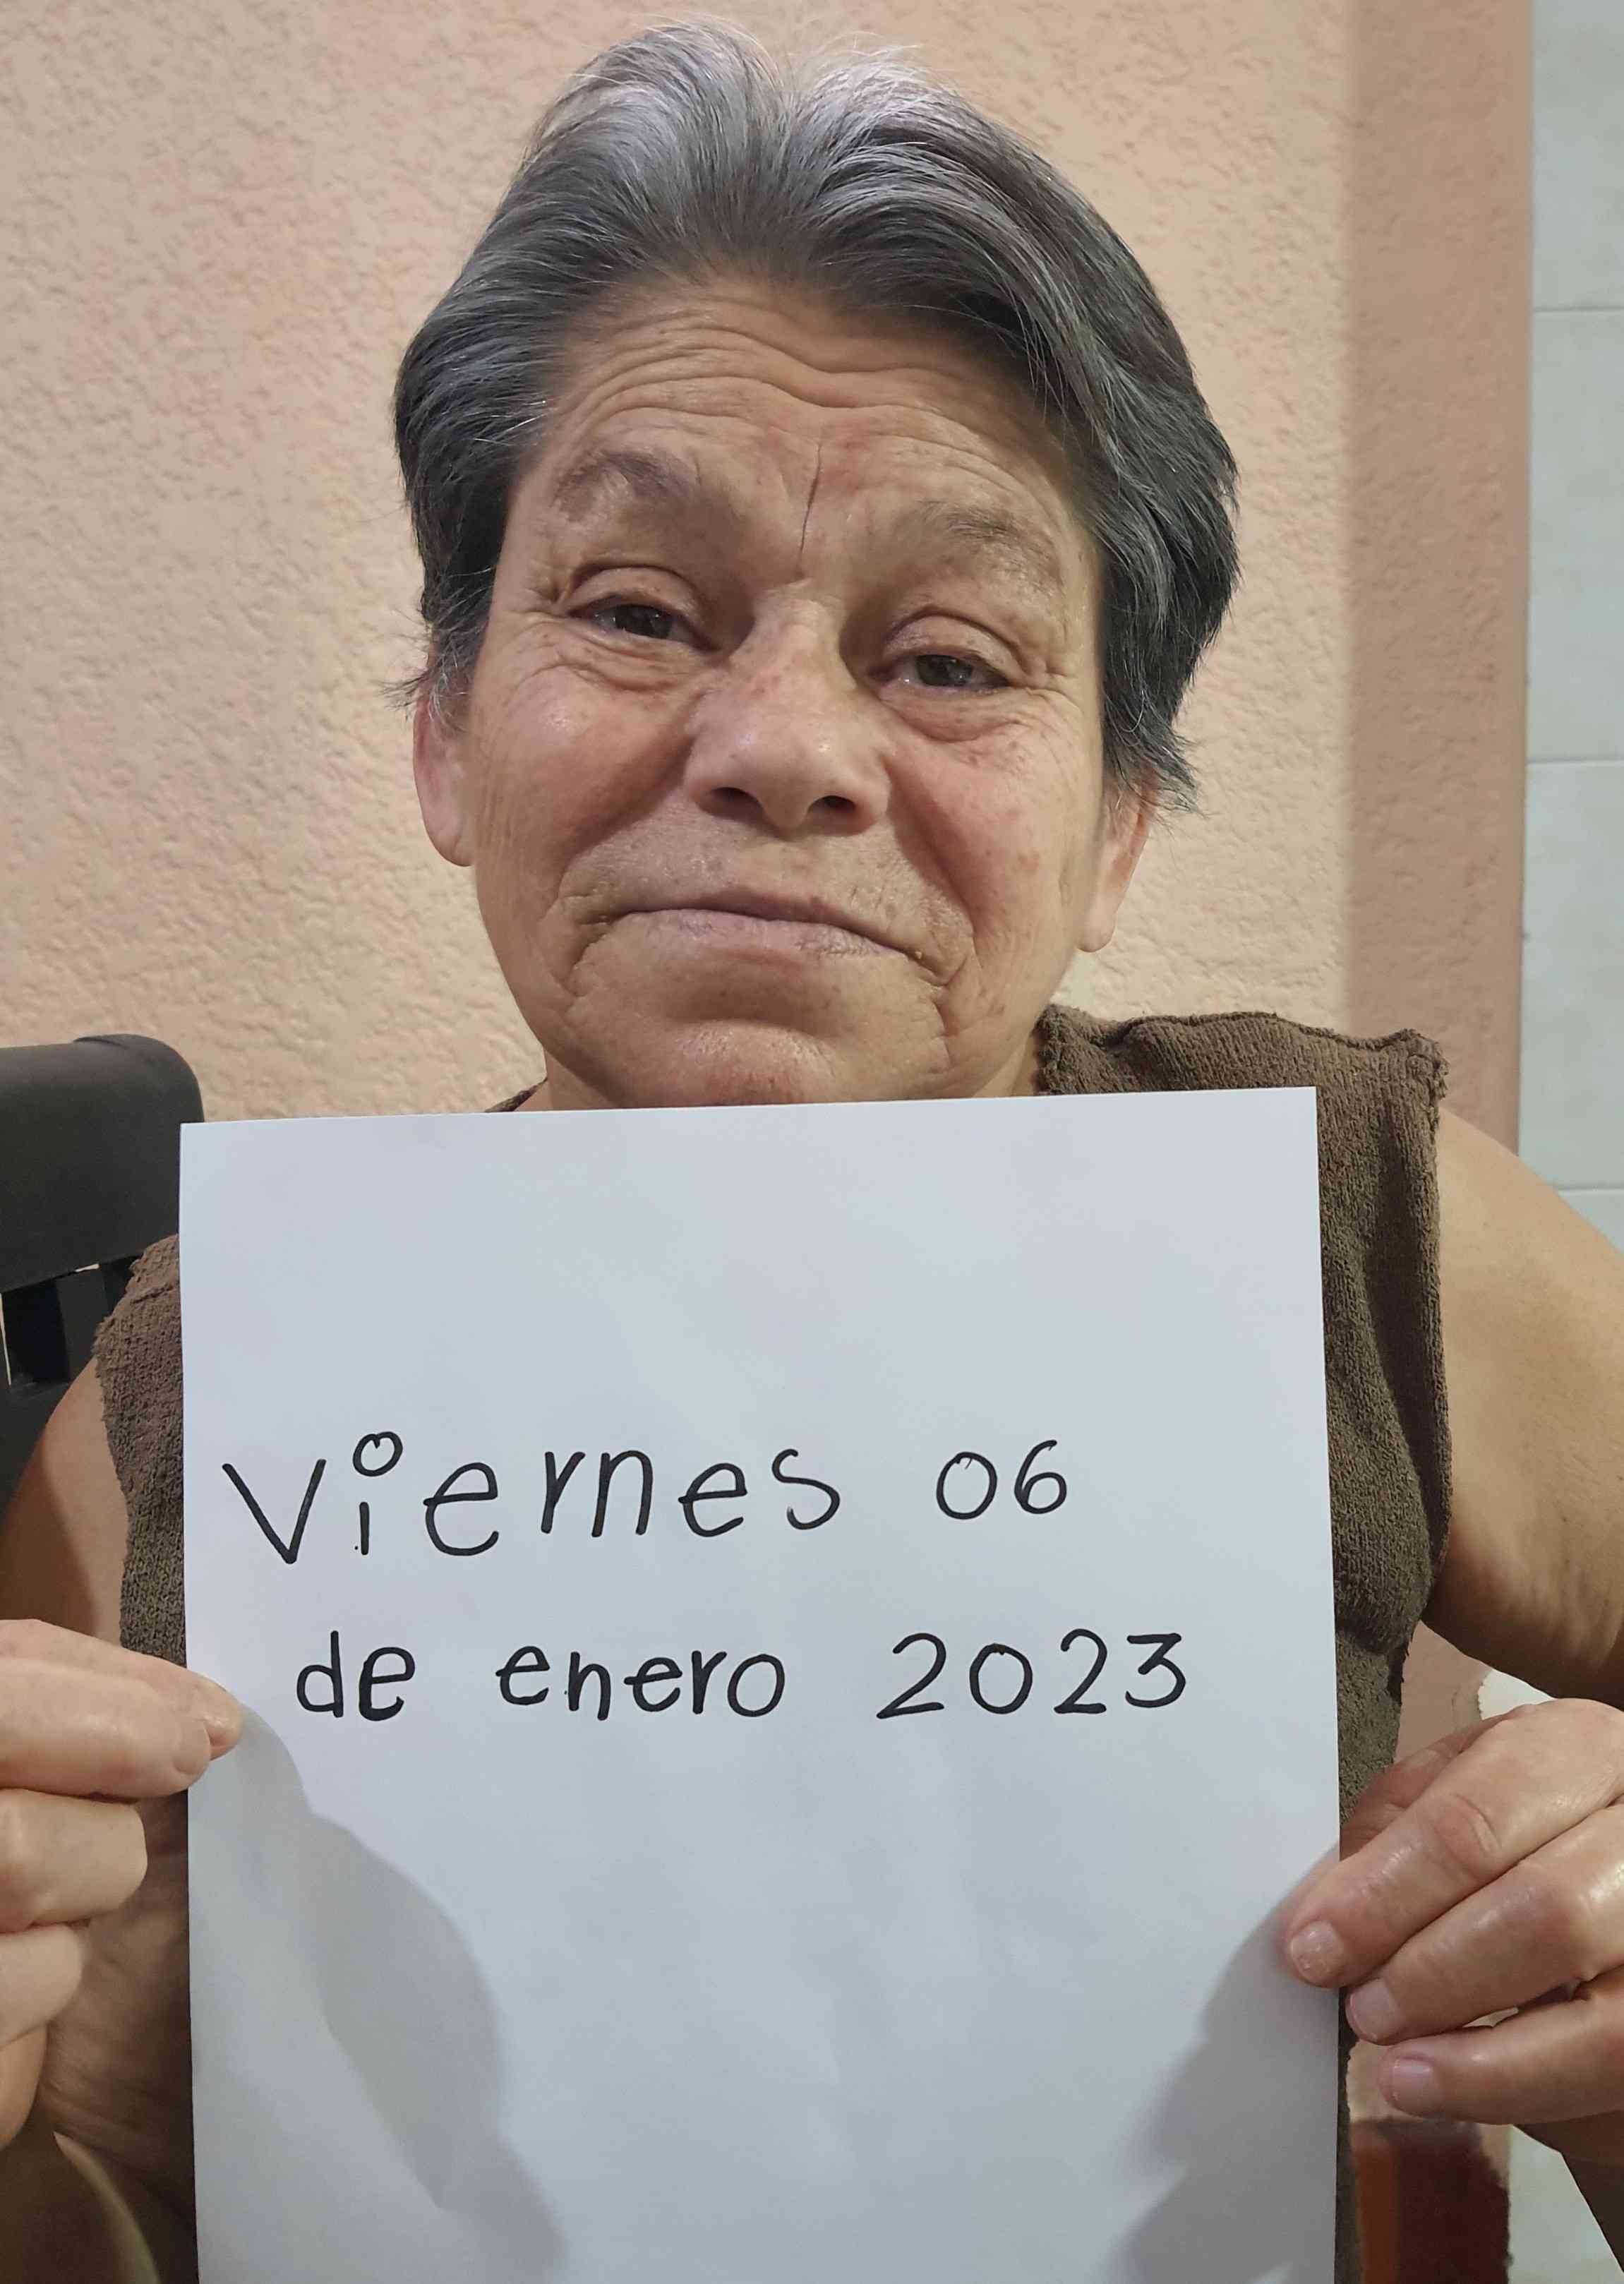 Viernes 06
de enero 2023